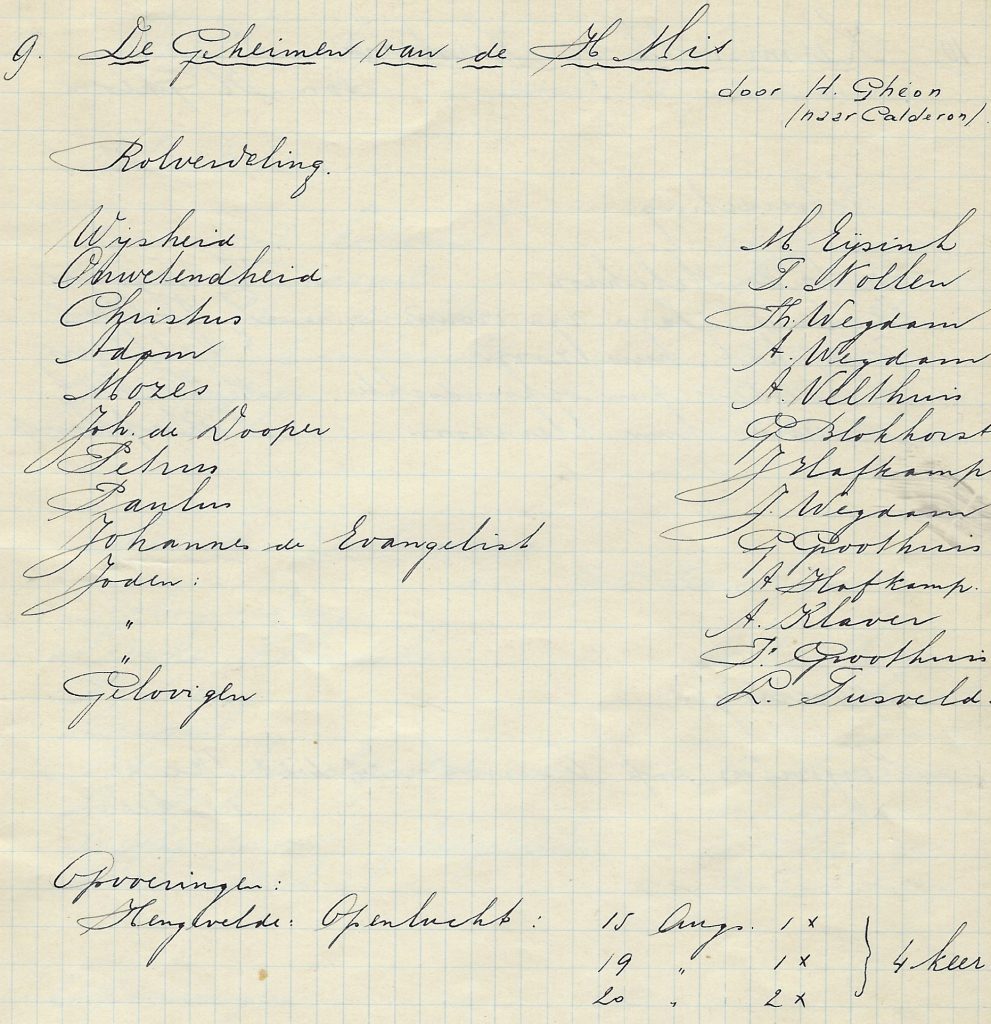 9. De Geheimen van de H Mis
door H. Ghéon
(naar Calderon)
Rolverdeling.
Wijsheid M. Eijsink
Onwetendheid T. Nollen
Christus Th. Wegdam
Adam A. Wegdam
Mozes A. Velthuis
Joh. de Dooper G Blokhorst
Petrus J Hafkamp
Paulus J. Wegdam
Johannes de Evangelist G Groothuis
Joden: A Hafkamp.
" A. Klaver
" F. Groothuis
Gelovigen L. Tusveld.
Opvoeringen:
Hengevelde: Openlucht: 15 Augs. 1x
19 " 1x } 4 keer
20 " 2x